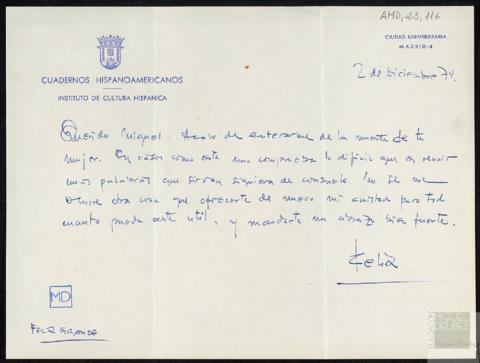 AMD, 23, 116
CUADERNOS HISPANOAMERICANOS
INSTITUTO DE CULTURA HISPANICA
CIUDAD UNIVERSITARIA
MADRID-3
2 de Diciembre 74.
Querido Miguel: Acabo de enterarme de la muerte de tu
mujer. En casos como este uno comprueba lo difícil que es reunir
unas palabras que sirvan siquiera de consuelo. No se me
ocurre otra cosa que ofrecerte de nuevo mi amistad para todo
cuanto pueda serte útil, y mandarte un abrazo bien fuerte.
Felix
MD
FELIX GRANDE
FUNDACIÓN
MIGUEL
DELIBES